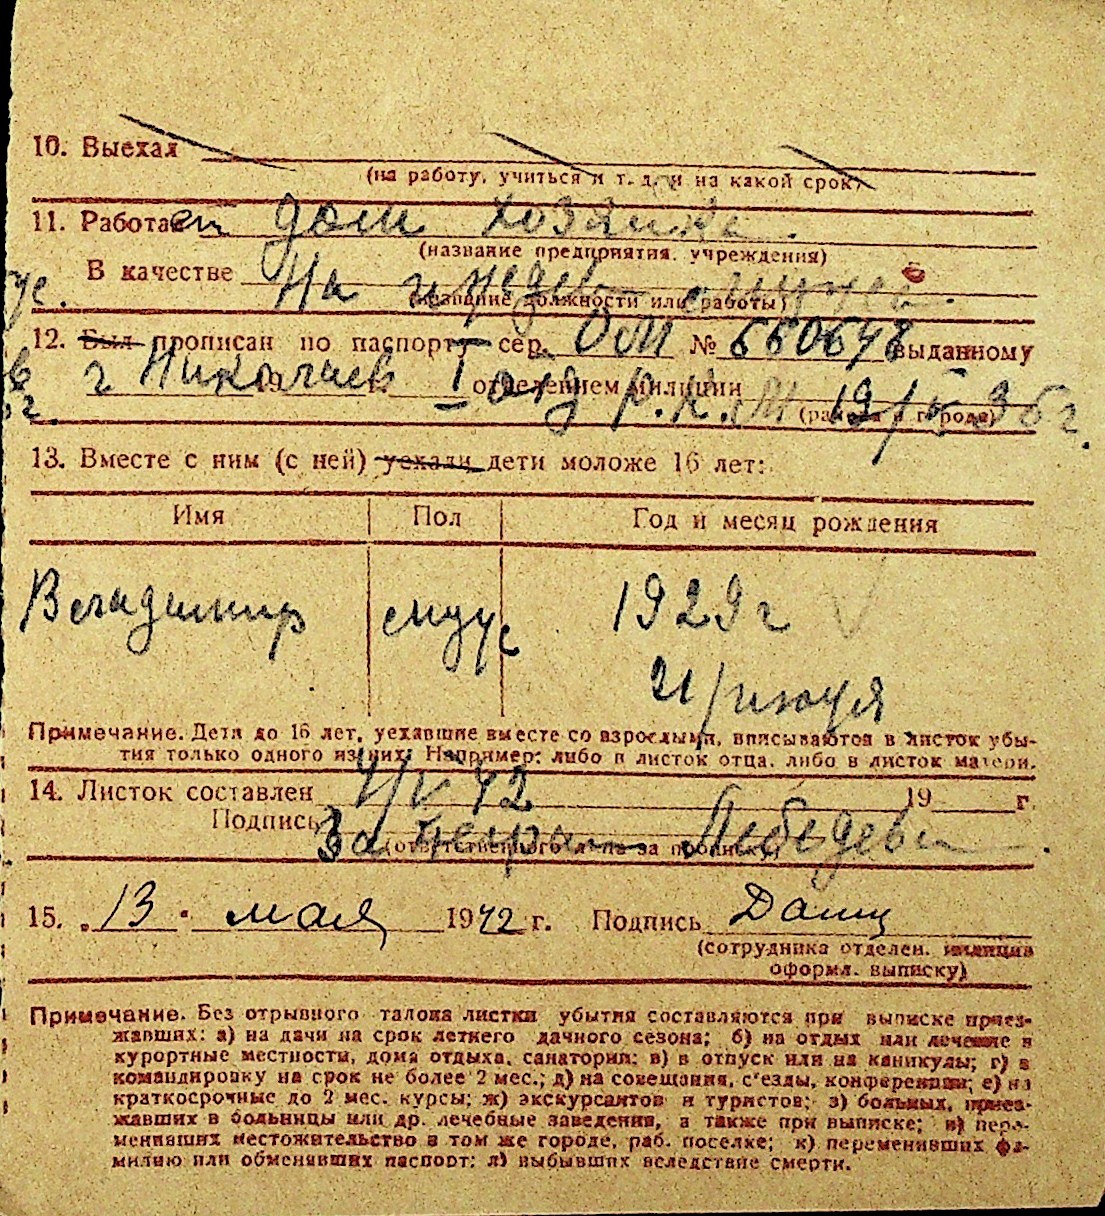 10. Выехал
(на работу, учиться и т. д. и на какой срок)
11. Работает дом хозяйка.
(название предприятия, учреждения)
В качестве На иждев мужа.
(название должности или работы)
12. Был прописан по паспорту сер. ОМ № 660648 выданному
в г Николаев 19 г. I отд отделением милиции Р.К.М 19/ 36г.
(района и города)
13. Вместе с ним (с ней) уехали дети моложе 16 лет:
Имя Пол Год и месяц рождения
Владимир муж 1929 г
21/июля
Примечание. Дети до 16 лет, уехавшие вместе со взрослыми, вписываются в листок убы-
тия только одного из них: Например: либо в листок отца, либо в листок матери.
14. Листок составлен 4/V 42 19 г.
Подпись За Лебедева
(ответственного лица за прописку)
15. „13" мая 1942 г. Подпись
(сотрудника отделен. милиции
оформл. выписку)
Примечание. Без отрывного талона листки убытия составляются при выписке приез-
жавших: а) на дачи на срок летнего дачного сезона; б) на отдых или лечение в
курортные местности, дома отдыха, санатории; в) в отпуск или на каникулы; г) в
командировку на срок не более 2 мес.; д) на совещания, с'езды, конференции; е) на
краткосрочные до 2 мес. курсы; ж) экскурсантов и туристов; з) больных, приез-
жавших в больницы или др. лечебные заведения, а также при выписке; и) пере-
менивших местожительство в том же городе, раб. поселке; к) переменивших фа-
милию или обменявших паспорт; л) выбывших вследствие смерти.